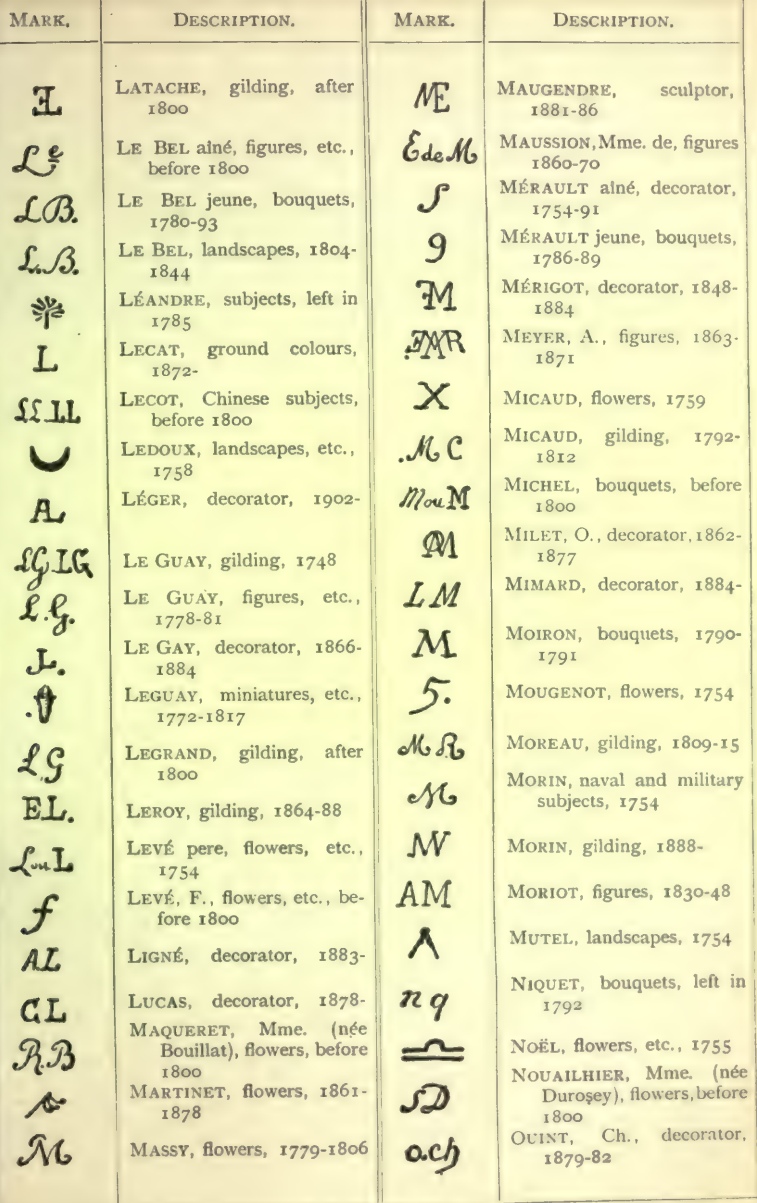 MARK. DESCRIPTION.
LATACHE, gilding, after
1800
Le LE BEL aîné, figures, etc.,
before 1800
LB. LE BEL jeune, bouquets,
1780-93
L.B. LE BEL, landscapes, 1804-
1844
LÉANDRE, subjects, left in
1785
L LECAT, ground colours,
1872-
LECOT, Chinese subjects,
before 1800
LEDOUX, landscapes, etc.,
1758
LÉGER, decorator, 1902-
LG LG LE GUAY, gilding, 1748
L.G. LE GUAY, figures, etc.,
1778-81
LE GAY, decorator, 1866-
1884
LEGUAY, miniatures, etc.,
1772-1817
LG LEGRAND, gilding, after
1800
EL. LEROY, gilding, 1864-88
L ou L LEVÉ pere, flowers, etc.,
1754
f LEVÉ, F., flowers, etc., be-
fore 1800
AL LIGNÉ, decorator, 1883-
CL LUCAS, decorator, 1878-
MAQUERET, Mme. (née
RB Bouillat), flowers, before
1800
MARTINET, flowers, 1861-
1878
M MASSY, flowers, 1779-1806
MARK. DESCRIPTION.
MAUGENDRE, sculptor,
1881-86
E de M MAUSSION, Mme. de, figures
1860-70
S MÉRAULT aîné, decorator,
1754-91
9 MÉRAULT jeune, bouquets,
1786-89
MÉRIGOT, decorator, 1848-
1884
MEYER, A., figures, 1863-
1871
X MICAUD, flowers, 1759
.M C MICAUD, gilding, 1792-
1812
M ou M MICHEL, bouquets, before
1800
MILET, O., decorator, 1862-
1877
LM MIMARD, decorator, 1884-
M MOIRON, bouquets, 1790-
1791
5. MOUGENOT, flowers, 1754
M R MOREAU, gilding, 1809-15
M MORIN, naval and military
subjects, 1754
MORIN, gilding, 1888-
AM MORIOT, figures, 1830-48
MUTEL, landscapes, 1754
n q NIQUET, bouquets, left in
1792
NOËL, flowers, etc., 1755
NOUAILHIER, Mme. (née
SD Duroşey), flowers, before
1800
o.ch OUINT, Ch., decorator,
1879-82